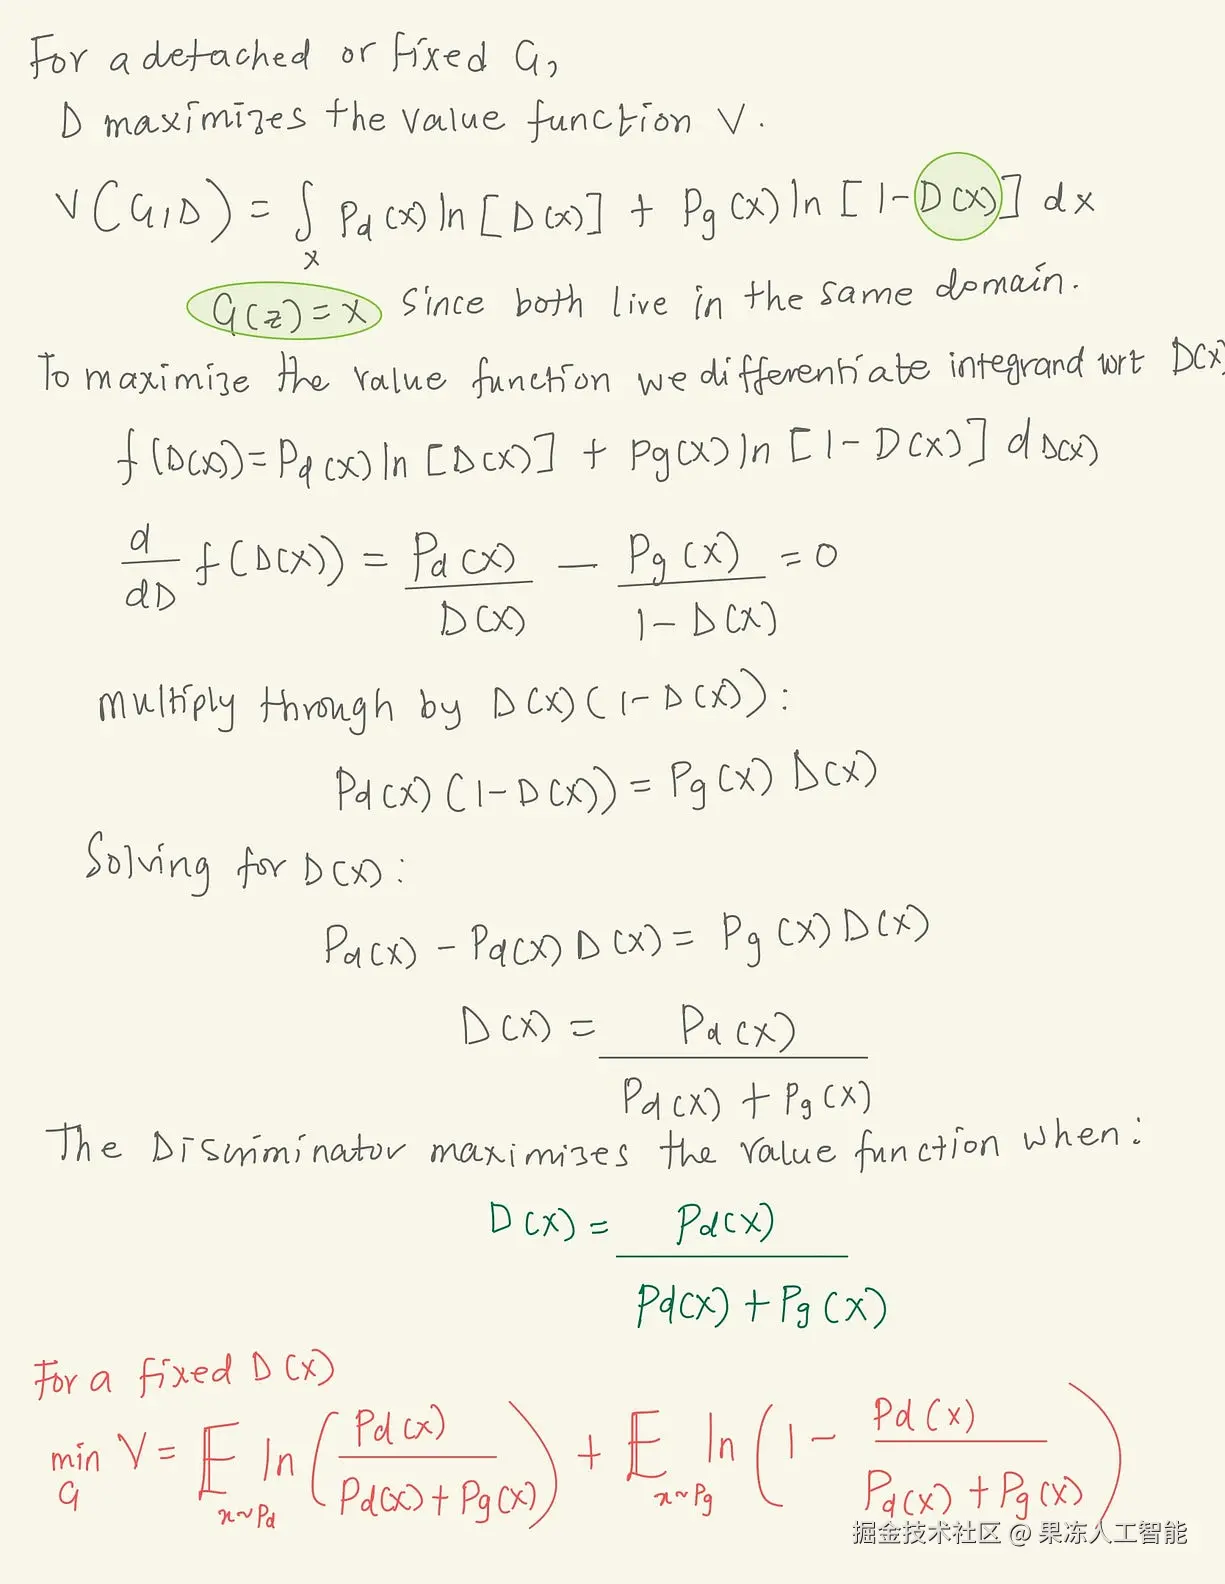 For a detached or fixed G,
D maximizes the value function V.
V(G,D) = ∫x Pd(x) ln [D(x)] + Pg(x) ln [1-D(x)] dx
G(z)=x since both live in the same domain.
To maximize the value function we differentiate integrand wrt D(x)
f(D(x))=Pd(x) ln [D(x)] + Pg(x) ln [1-D(x)] dD(x)
d/dD f(D(x)) = Pd(x)/D(x) - Pg(x)/1-D(x) = 0
multiply through by D(x)(1-D(x)):
Pd(x)(1-D(x)) = Pg(x) D(x)
Solving for D(x):
Pd(x) - Pd(x) D(x) = Pg(x) D(x)
D(x) = Pd(x)/Pd(x) + Pg(x)
The Discriminator maximizes the value function when:
D(x) = Pd(x)/Pd(x) + Pg(x)
For a fixed D(x)
min G V = 𝔼x~Pd ln (Pd(x)/Pd(x)+Pg(x)) + 𝔼x~Pg ln (1 - Pd(x)/Pd(x)+Pg(x))
掘金技术社区 @ 果冻人工智能